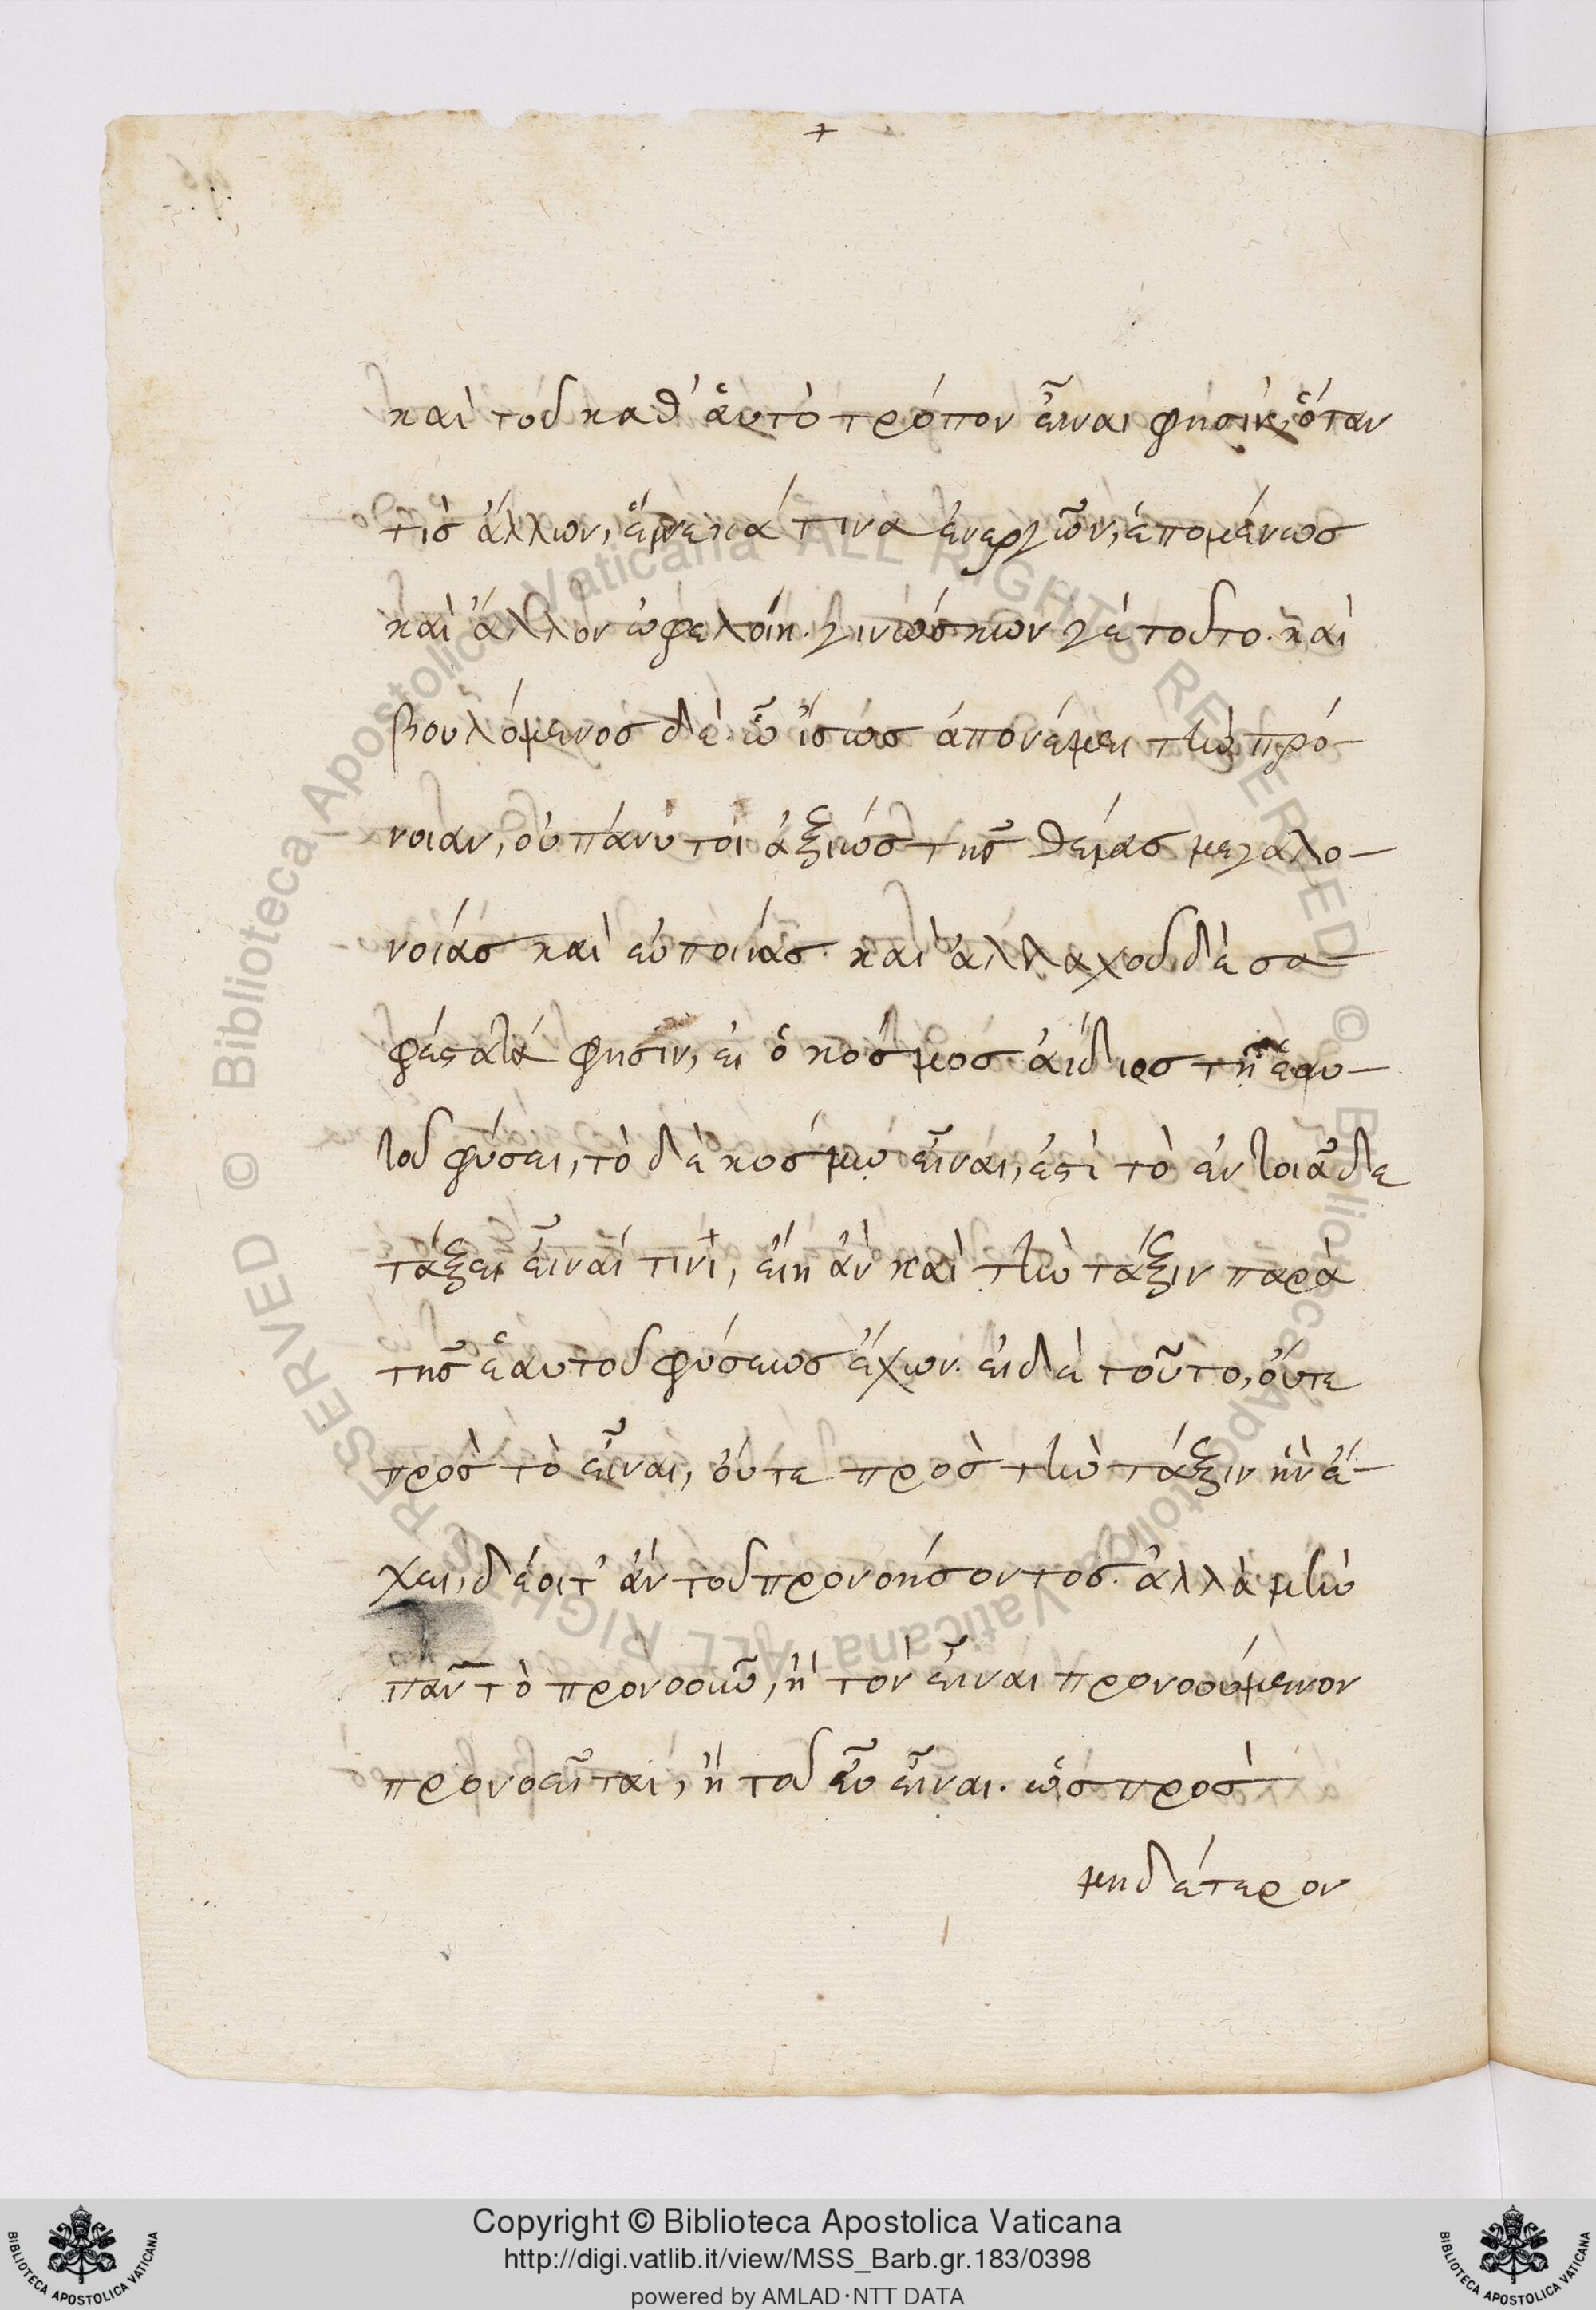 +
καὶ τοῦ καθ' αὑτὸ τρόπον εἶναι φησὶν, ὅταν
τὶς ἄλλων, ἕνεκά τινα ἐνεργῶν, ἑπομένως
καὶ ἄλλον ὠφελοίη. γινώσκων γὲ τοῦτο. καὶ
βουλόμενος δὲ. ᾧ ἴσως ἀπονέμει τὴν πρό-
νοιαν, οὐ πάνυ τοι ἀξιώς τῆς θείας μεγαλο-
νοίας καὶ εὐποιίας. καὶ ἀλλαχοῦ δὲ σα-
φέστατά φησιν, εἰ ὁ κόσμος ἀΐδιος τῇ ἑαυ-
τοῦ φύσει, τὸ δὲ κόσμῳ εἶναι, ἐστὶ τὸ ἐν τοιᾷδε
τάξει εἶναί τινι, εἴη ἂν καὶ τὴν τάξιν παρὰ
τῆς ἑαυτοῦ φύσεως ἔχων. εἰ δὲ τοῦτο, οὔτε
πρὸς τὸ εἶναι, οὔτε πρὸς τὴν τάξιν ἣν ἔ-
χει, δέοιτ' ἂν τοῦ προνοήσοντος. ἀλλὰ μὴν
πᾶν τὸ προνοοῦν, ἢ τοῦ εἶναι προνοούμενον
προνοεῖται, ἢ τοῦ εὖ εἶναι. ὡς πρὸς
μηδέτερον
Copyright © Biblioteca Apostolica Vaticana
http://digi.vatlib.it/view/MSS_Barb.gr.183/0398
powered by AMLAD·NTT DATA
BIBLIOTECA APOSTOLICA VATICANA
BIBLIOTECA APOSTOLICA VATICANA
© Biblioteca Apostolica Vaticana ALL RIGHTS RESERVED © Biblioteca Apostolica Vaticana ALL RIGHTS RESERVED